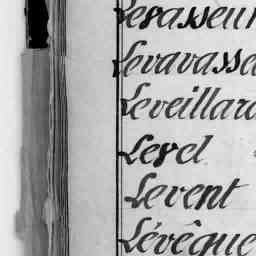 Levasseur
Levavasse
Leveillard
Level
Levent
Lévêque